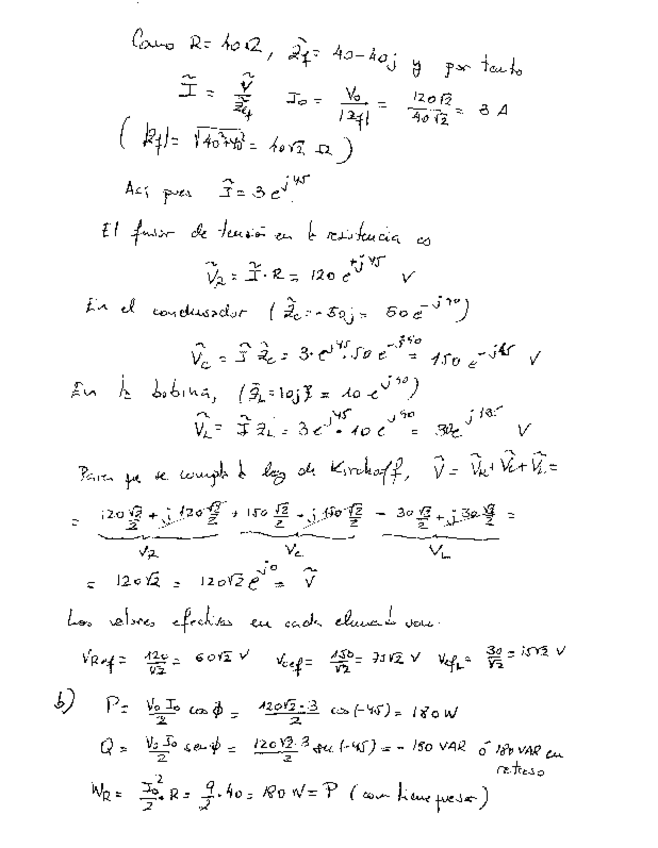 Como R = 40 Ω, Z̃f = 40 - 40j y por tanto
Ĩ = Ṽ/Z̃f   I₀ = V₀/|Zf| = 120√2/40√2 = 3 A
( |Zf| = √(40²+40²) = 40√2 Ω )
Así pues Ĩ = 3 e^{j45}
El fasor de tensión en la resistencia es
Ṽ_R = Ĩ · R = 120 e^{+j45} V
En el condensador ( Z̃c = -50j = 50 e^{-j90} )
Ṽc = Ĩ Z̃c = 3 · e^{j45} · 50 e^{-j90} = 150 e^{-j45} V
En la bobina, ( Z̃_L = 10j = 10 e^{j90} )
Ṽ_L = Ĩ Z_L = 3 e^{j45} · 10 e^{j90} = 30 e^{j135} V
Para que se cumpla la ley de Kirchoff, Ṽ = Ṽ_R + Ṽc + Ṽ_L =
= 120 √2/2 + j 120 √2/2 + 150 √2/2 - j 150 √2/2 - 30 √2/2 + j 30 √2/2 =
V_R   Vc   V_L
= 120√2 = 120√2 e^{j0} = Ṽ
Los valores efectivos en cada elemento son.
V_Ref = 120/√2 = 60√2 V   Vcef = 150/√2 = 75√2 V   Vef_L = 30/√2 = 15√2 V
b) P = V₀I₀/2 cos ϕ = 120√2·3/2 cos(-45) = 180 W
Q = V₀I₀/2 sen ϕ = 120√2·3/2 sen(-45) = - 180 VAR ó 180 VAR en
retraso
W_R = I₀²/2 · R = 9/2 · 40 = 180 W = P (como tiene que ser)